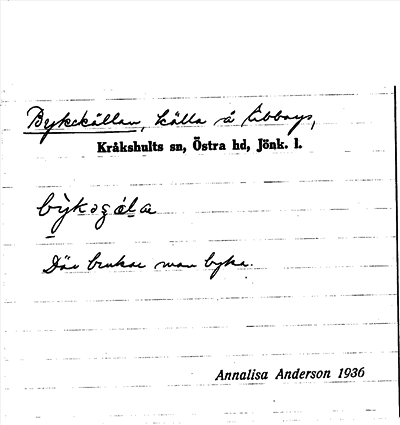 Bykekällan, källa å Ubbarp,
Kråkshults sn, Östra hd, Jönk. l.
Där brukar man byka.
Annalisa Anderson 1936